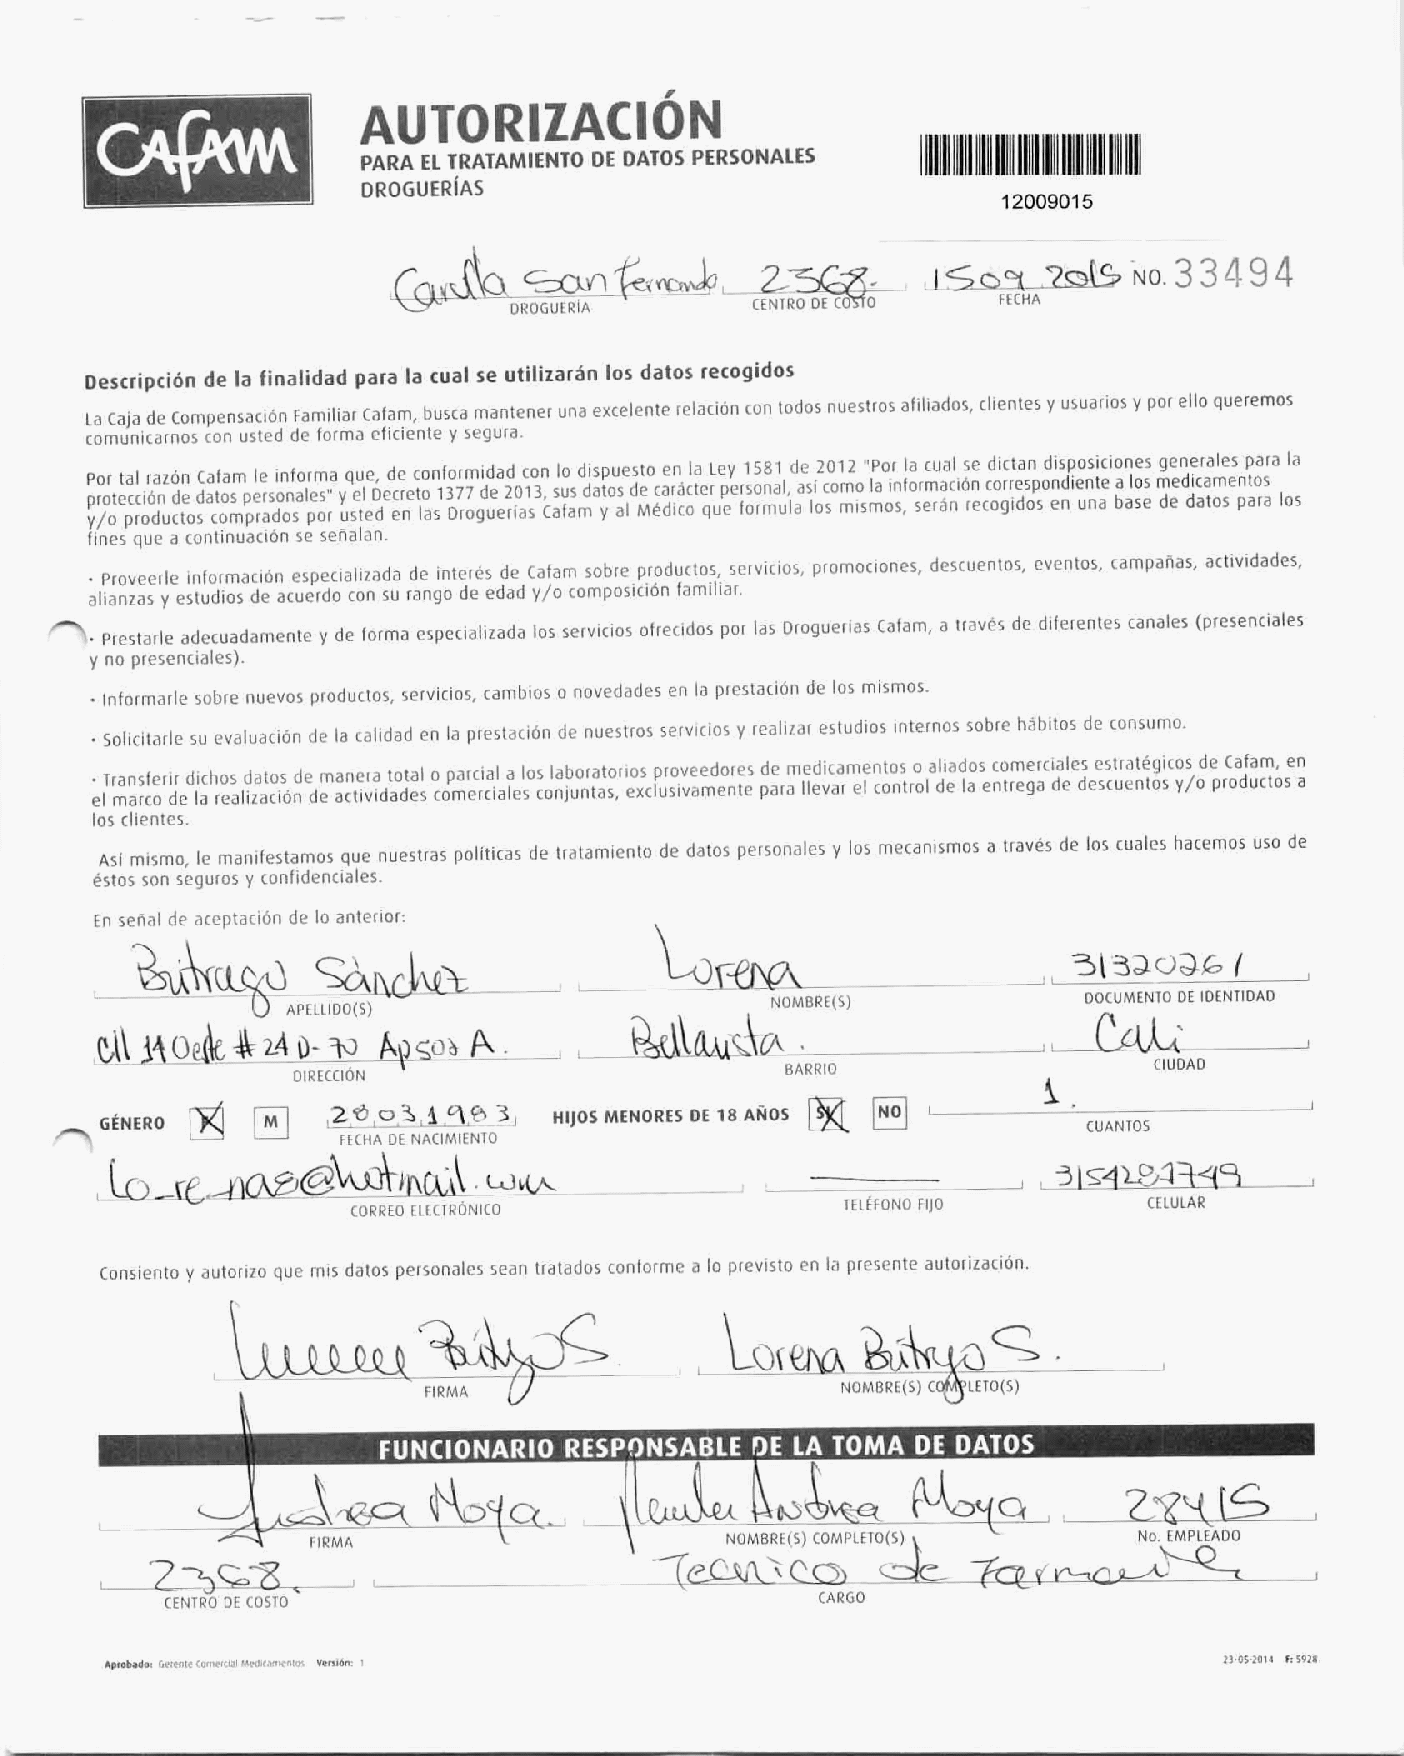 CAFAM
AUTORIZACIÓN
PARA EL TRATAMIENTO DE DATOS PERSONALES
DROGUERÍAS
12009015
San Fernando 2368. 1509 2015 NO. 33494
DROGUERÍA CENTRO DE COSTO FECHA
Descripción de la finalidad para la cual se utilizarán los datos recogidos
La Caja de Compensación Familiar Cafam, busca mantener una excelente relación con todos nuestros afiliados, clientes y usuarios y por ello queremos
comunicarnos con usted de forma eficiente y segura.
Por tal razón Cafam le informa que, de conformidad con lo dispuesto en la Ley 1581 de 2012 "Por la cual se dictan disposiciones generales para la
protección de datos personales" y el Decreto 1377 de 2013, sus datos de carácter personal, así como la información correspondiente a los medicamentos
y/o productos comprados por usted en las Droguerías Cafam y al Médico que formula los mismos, serán recogidos en una base de datos para los
fines que a continuación se señalan.
· Proveerle información especializada de interés de Cafam sobre productos, servicios, promociones, descuentos, eventos, campañas, actividades,
alianzas y estudios de acuerdo con su rango de edad y/o composición familiar.
· Prestarle adecuadamente y de forma especializada los servicios ofrecidos por las Droguerías Cafam, a través de diferentes canales (presenciales
y no presenciales).
· Informarle sobre nuevos productos, servicios, cambios o novedades en la prestación de los mismos.
· Solicitarle su evaluación de la calidad en la prestación de nuestros servicios y realizar estudios internos sobre hábitos de consumo.
· Transferir dichos datos de manera total o parcial a los laboratorios proveedores de medicamentos o aliados comerciales estratégicos de Cafam, en
el marco de la realización de actividades comerciales conjuntas, exclusivamente para llevar el control de la entrega de descuentos y/o productos a
los clientes.
Así mismo, le manifestamos que nuestras políticas de tratamiento de datos personales y los mecanismos a través de los cuales hacemos uso de
éstos son seguros y confidenciales.
En señal de aceptación de lo anterior:
Buitrago Sànchez Lorena 31320261
APELLIDO(S) NOMBRE(S) DOCUMENTO DE IDENTIDAD
Cll 14 Oeste # 24 D-70 Ap 502 A. Bellavista. Cali
DIRECCIÓN BARRIO CIUDAD
GÉNERO X M 28 03 1983 HIJOS MENORES DE 18 AÑOS SI NO 1.
FECHA DE NACIMIENTO CUANTOS
lo_re_nas@hotmail.com 3154281749
CORREO ELECTRÓNICO TELÉFONO FIJO CELULAR
Consiento y autorizo que mis datos personales sean tratados conforme a lo previsto en la presente autorización.
Lorena Buitrago S.
FIRMA NOMBRE(S) COMPLETO(S)
FUNCIONARIO RESPONSABLE DE LA TOMA DE DATOS
Andrea Moya. Andrea Moya 28415
FIRMA NOMBRE(S) COMPLETO(S) No. EMPLEADO
2368. Tecnico de Farmacia
CENTRO DE COSTO CARGO
Aprobado: Gerente Comercial Medicamentos Versión: 1 23-05-2014 F: 5928